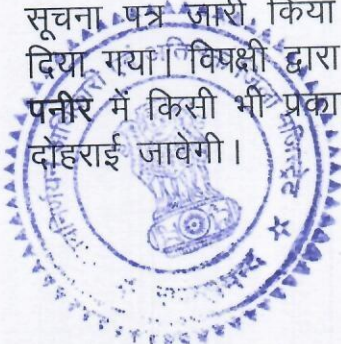 सूचना पत्र जारी किया
दिया गया। विपक्षी द्वारा
पनीर में किसी भी प्रका
दोहराई जावेगी।